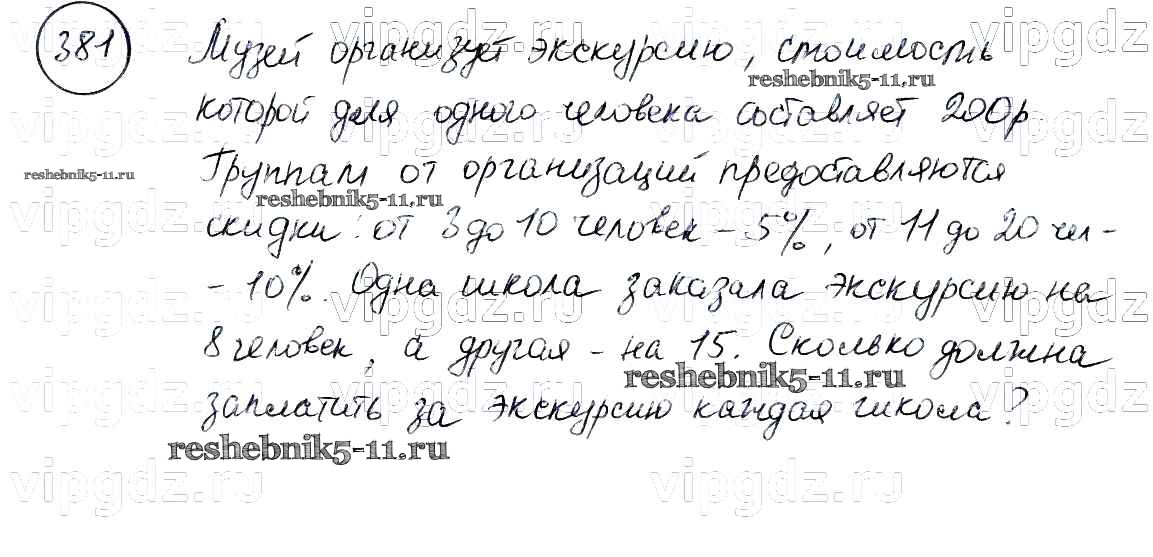 381 Музей организует экскурсию, стоимость
которой для одного человека составляет 200р
Группам от организаций предоставляются
скидки: от 3 до 10 человек - 5%, от 11 до 20 чел -
- 10%. Одна школа заказала экскурсию на
8 человек, а другая - на 15. Сколько должна
заплатить за экскурсию каждая школа?
reshebnik5-11.ru
reshebnik5-11.ru
reshebnik5-11.ru
reshebnik5-11.ru
reshebnik5-11.ru
vipgdz.ru